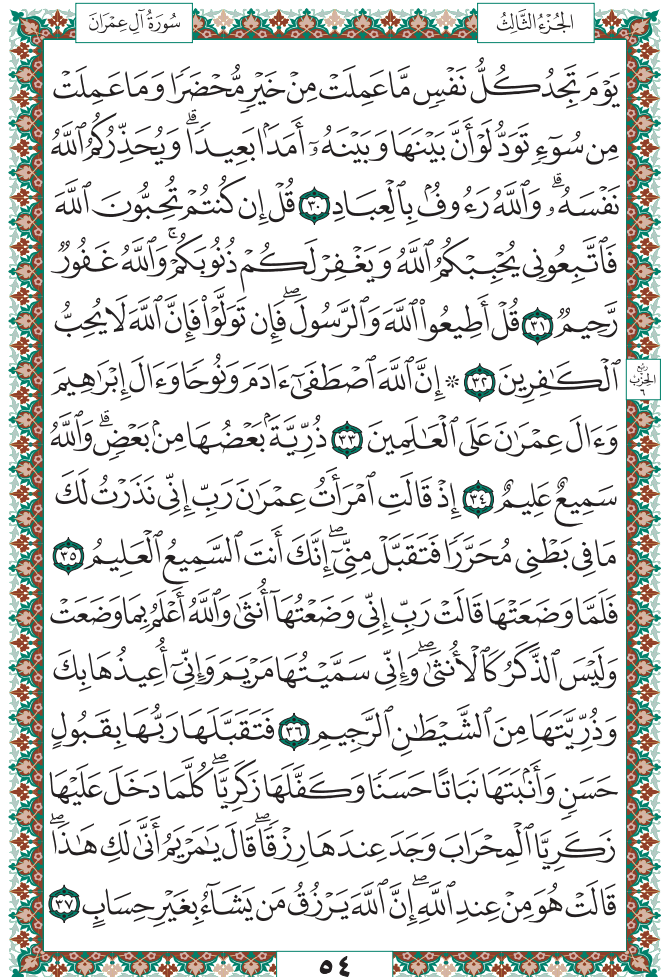 سُورَةُ آلِ عِمْرَانَ
الجُزْءُ الثَّالِثُ
يَوْمَ تَجِدُ كُلُّ نَفْسٍ مَّا عَمِلَتْ مِنْ خَيْرٍ مُّحْضَرًا وَمَا عَمِلَتْ
مِن سُوٓءٍ تَوَدُّ لَوْ أَنَّ بَيْنَهَا وَبَيْنَهُۥٓ أَمَدَۢا بَعِيدًاۗ وَيُحَذِّرُكُمُ ٱللَّهُ
نَفْسَهُۥۗ وَٱللَّهُ رَءُوفُۢ بِٱلْعِبَادِ ٣٠ قُلْ إِن كُنتُمْ تُحِبُّونَ ٱللَّهَ
فَٱتَّبِعُونِى يُحْبِبْكُمُ ٱللَّهُ وَيَغْفِرْ لَكُمْ ذُنُوبَكُمْۚ وَٱللَّهُ غَفُورٌ
رَّحِيمٌ ٣١ قُلْ أَطِيعُوا۟ ٱللَّهَ وَٱلرَّسُولَۖ فَإِن تَوَلَّوْا۟ فَإِنَّ ٱللَّهَ لَا يُحِبُّ
ٱلْكَـٰفِرِينَ ٣٢ ۞ إِنَّ ٱللَّهَ ٱصْطَفَىٰٓ ءَادَمَ وَنُوحًا وَءَالَ إِبْرَٰهِيمَ
رُبْعُ
الحِزْبِ
٦
وَءَالَ عِمْرَٰنَ عَلَى ٱلْعَـٰلَمِينَ ٣٣ ذُرِّيَّةَۢ بَعْضُهَا مِنۢ بَعْضٍۗ وَٱللَّهُ
سَمِيعٌ عَلِيمٌ ٣٤ إِذْ قَالَتِ ٱمْرَأَتُ عِمْرَٰنَ رَبِّ إِنِّى نَذَرْتُ لَكَ
مَا فِى بَطْنِى مُحَرَّرًا فَتَقَبَّلْ مِنِّىٓۖ إِنَّكَ أَنتَ ٱلسَّمِيعُ ٱلْعَلِيمُ ٣٥
فَلَمَّا وَضَعَتْهَا قَالَتْ رَبِّ إِنِّى وَضَعْتُهَآ أُنثَىٰ وَٱللَّهُ أَعْلَمُ بِمَا وَضَعَتْ
وَلَيْسَ ٱلذَّكَرُ كَٱلْأُنثَىٰۖ وَإِنِّى سَمَّيْتُهَا مَرْيَمَ وَإِنِّىٓ أُعِيذُهَا بِكَ
وَذُرِّيَّتَهَا مِنَ ٱلشَّيْطَـٰنِ ٱلرَّجِيمِ ٣٦ فَتَقَبَّلَهَا رَبُّهَا بِقَبُولٍ
حَسَنٍ وَأَنۢبَتَهَا نَبَاتًا حَسَنًا وَكَفَّلَهَا زَكَرِيَّاۖ كُلَّمَا دَخَلَ عَلَيْهَا
زَكَرِيَّا ٱلْمِحْرَابَ وَجَدَ عِندَهَا رِزْقًاۖ قَالَ يَـٰمَرْيَمُ أَنَّىٰ لَكِ هَـٰذَاۖ
قَالَتْ هُوَ مِنْ عِندِ ٱللَّهِۖ إِنَّ ٱللَّهَ يَرْزُقُ مَن يَشَآءُ بِغَيْرِ حِسَابٍ ٣٧
٥٤